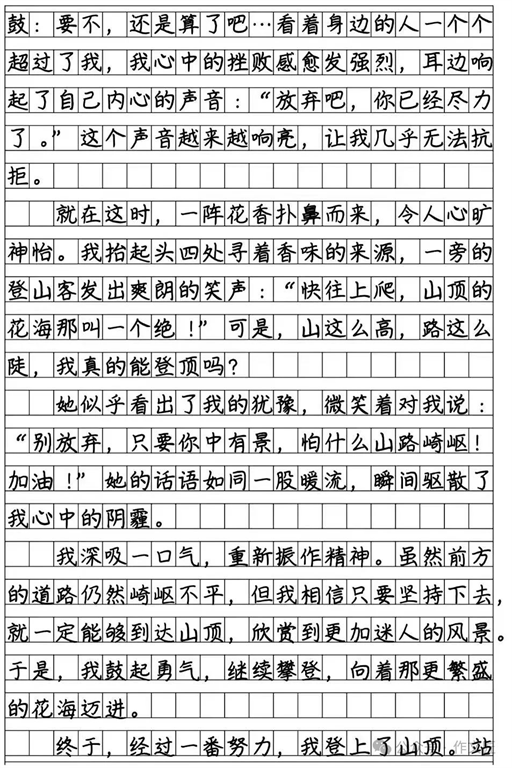 鼓：要不，还是算了吧…看着身边的人一个个
超过了我，我心中的挫败感愈发强烈，耳边响
起了自己内心的声音：“放弃吧，你已经尽力
了。”这个声音越来越响亮，让我几乎无法抗
拒。
就在这时，一阵花香扑鼻而来，令人心旷
神怡。我抬起头四处寻着香味的来源，一旁的
登山客发出爽朗的笑声：“快往上爬，山顶的
花海那叫一个绝！”可是，山这么高，路这么
陡，我真的能登顶吗？
她似乎看出了我的犹豫，微笑着对我说：
“别放弃，只要你中有景，怕什么山路崎岖！
加油！”她的话语如同一股暖流，瞬间驱散了
我心中的阴霾。
我深吸一口气，重新振作精神。虽然前方
的道路仍然崎岖不平，但我相信只要坚持下去，
就一定能够到达山顶，欣赏到更加迷人的风景。
于是，我鼓起勇气，继续攀登，向着那更繁盛
的花海迈进。
终于，经过一番努力，我登上了山顶。站